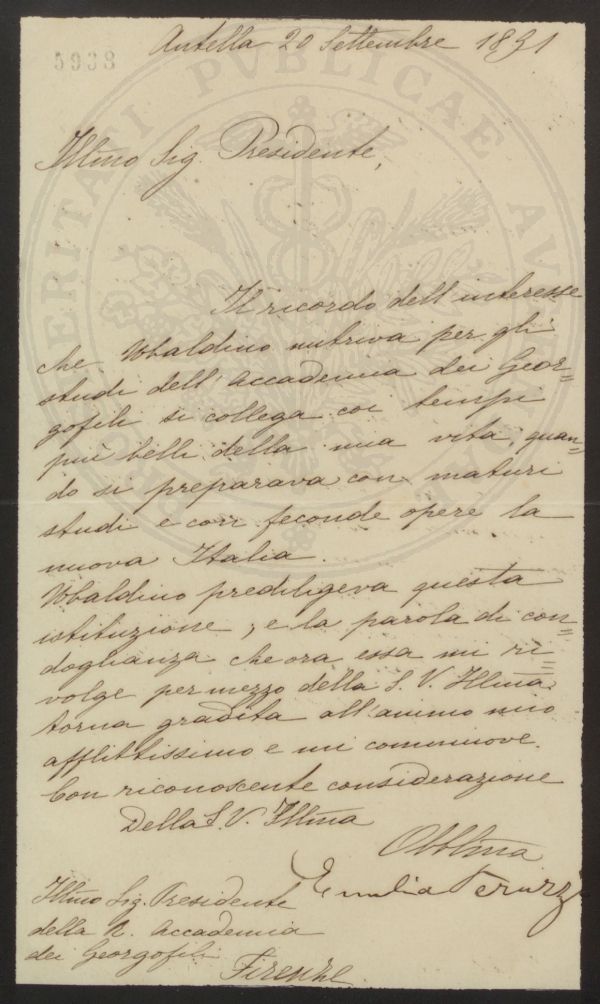 Antella 20 Settembre 1891
5938
PROSPERITATI PVBLICAE AVGENDAE
Illmo Sig. Presidente,
Il ricordo dell'interesse
che Ubaldino nutriva per gli
studi dell'Accademia dei Geor=
gofili si collega coi tempi
più belli della mia vita, quan=
do si preparava con maturi
studi e con feconde opere la
nuova Italia.
Ubaldino prediligeva questa
istituzione, e la parola di con=
doglianza che ora essa mi ri=
volge per mezzo della S. V. Illma
torna gradita all'animo mio
afflittissimo e mi commuove.
Con riconoscente considerazione
Della S. V. Illma
Obblma
Emilia Peruzzi
Illmo Sig. Presidente
della R. Accademia
dei Georgofili
Firenze